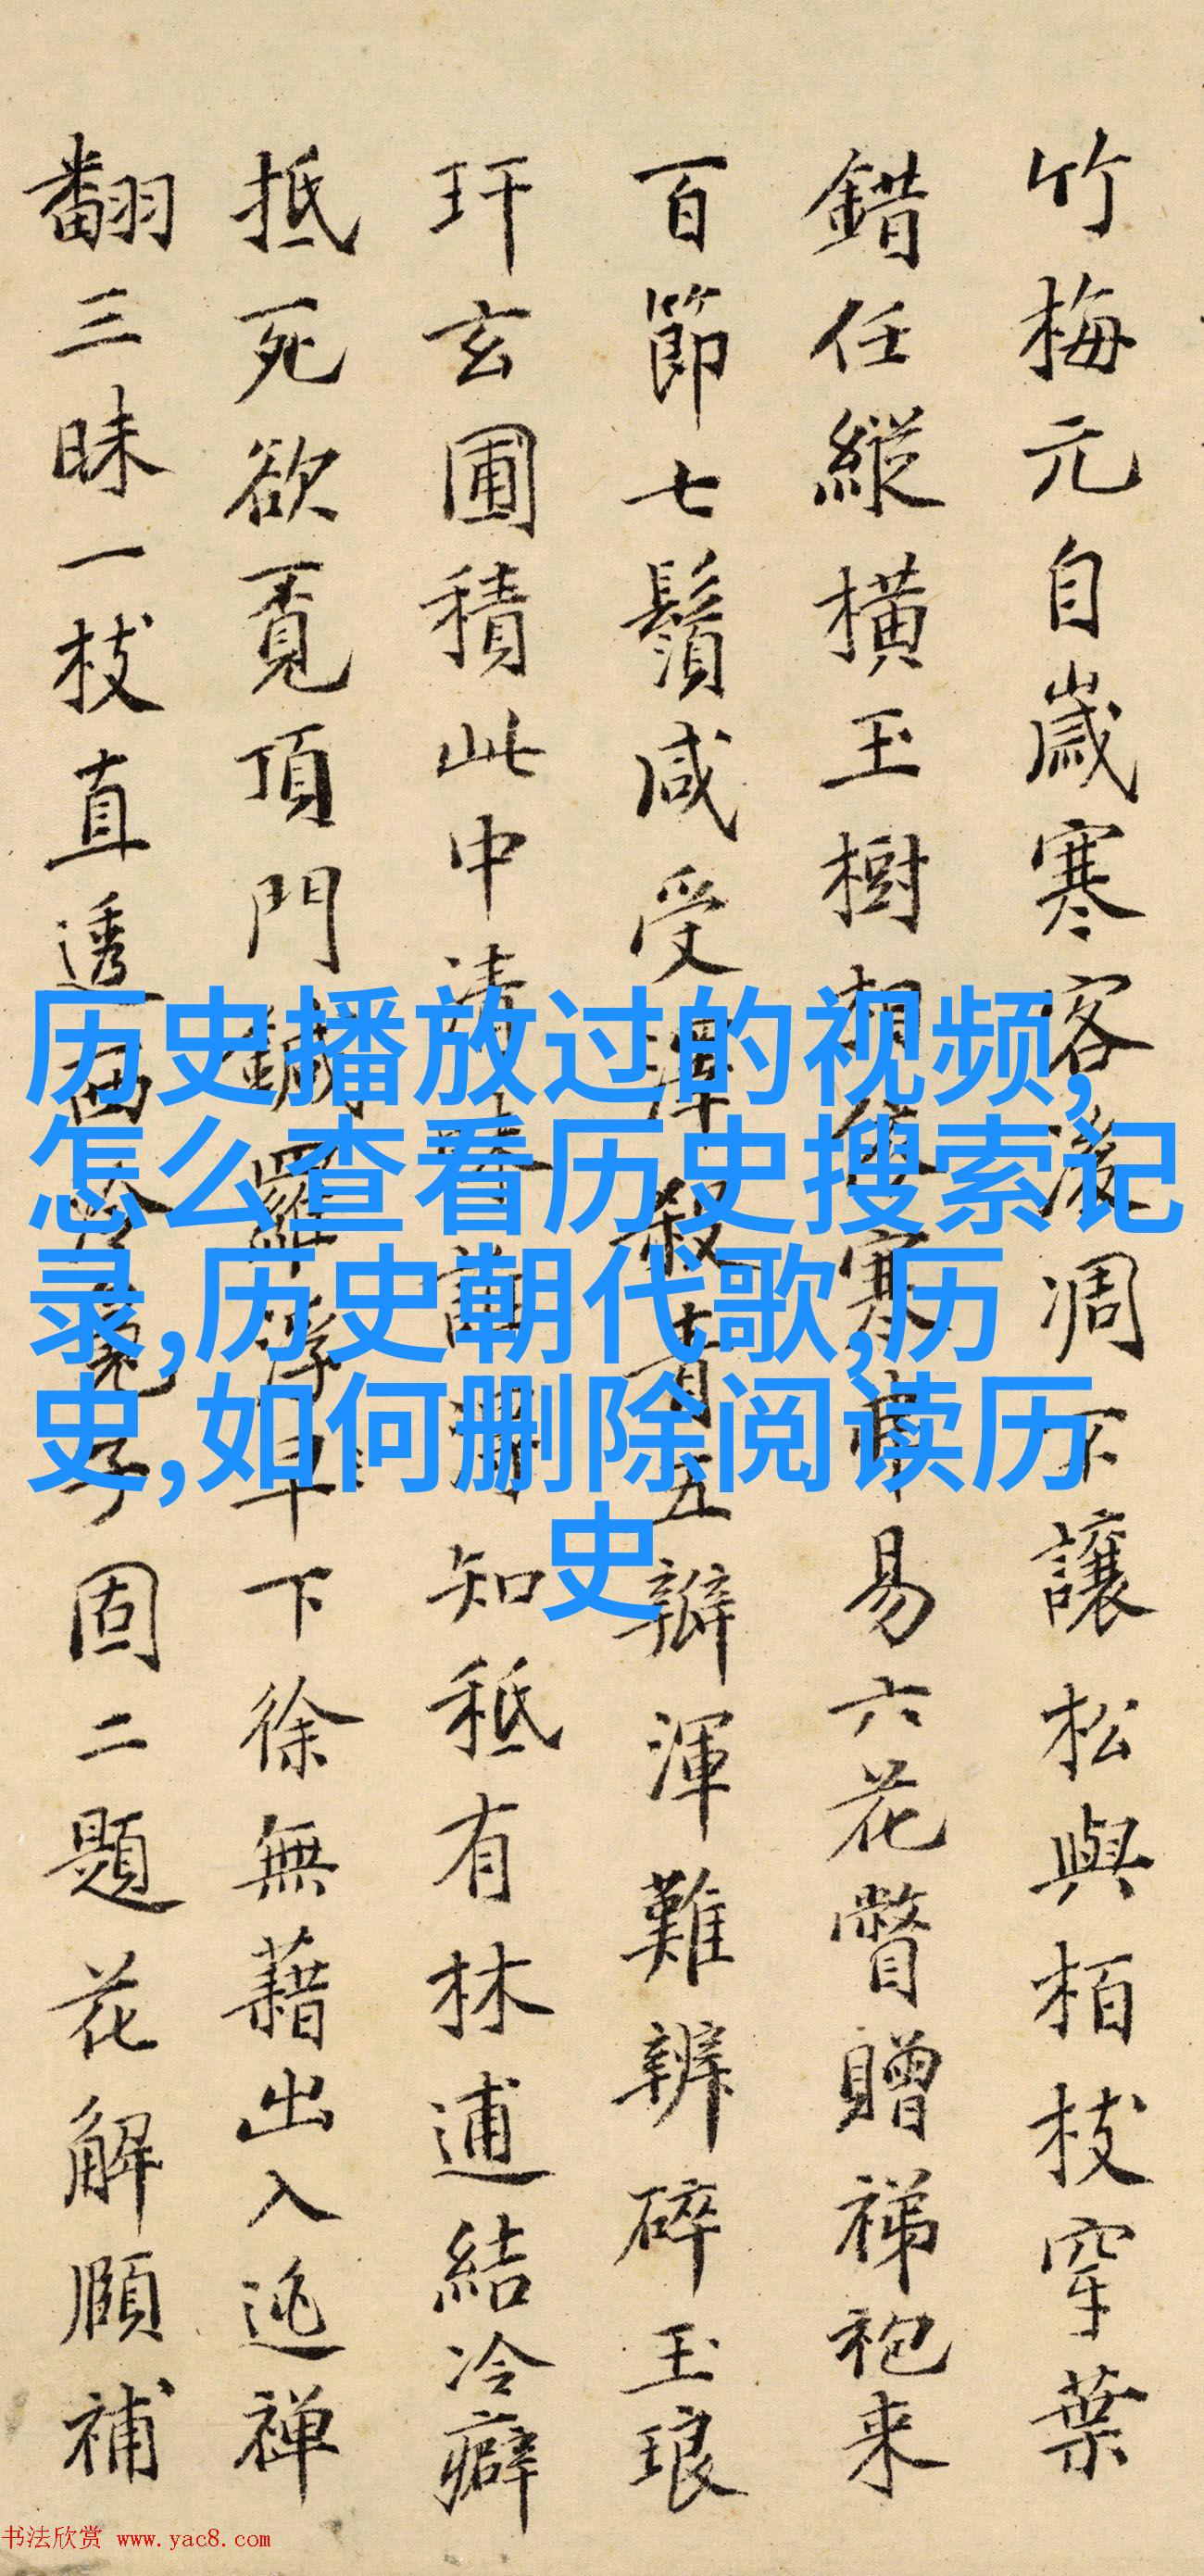 竹梅元自歲寒客後凋不讓松與栢枝穿葉
錯任縱橫玉樹寒易六花瞥贈祶袍来
百節七鬚咸受澤殺青五瓣渾難辨碎玉琅
玕玄圃積此中清誰知秪有林逋結冷癖
抵死欲覔頂門鍼羅浮早下徐無藉出入逃禅
翻三昧一枝直透西固二題花解頤補
历史播放过的视频,
怎么查看历史搜索记
录,历史朝代歌,历
史,如何删除阅读历
史
书法欣赏 www.yac8.com